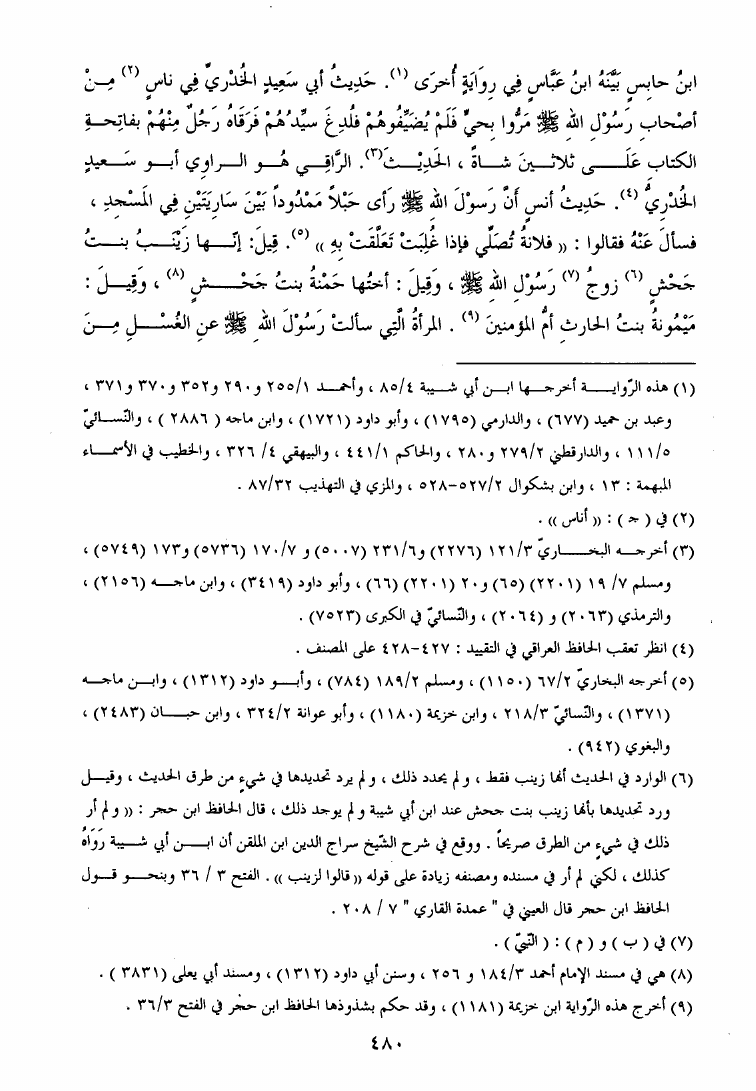 ابنُ حابسٍ بَيَّنَهُ ابنُ عَبَّاسٍ فِي رِوَايَةٍ أُخرَى (١). حَدِيثُ أبي سَعِيدٍ الخُدْرِيِّ فِي ناسٍ (٢) مِـنْ
أصْحابِ رَسُوْلِ الله ﷺ مَرُّوا بِحيٍّ فَلَمْ يُضَيِّفُوهُمْ فَلُدِغَ سيِّدُهُمْ فَرَقَاهُ رَجُلٌ مِنْهُمْ بفاتِحـةِ
الكتابِ عَلَــى ثلاثـينَ شـاةً ، الحَدِيْـثَ(٣). الرَّاقِـي هُـو الـراوي أبـو سَـعيدٍ
الخُدْرِيُّ (٤). حَدِيثُ أنسٍ أنَّ رَسولَ الله ﷺ رأى حَبْلاً مَمْدُوداً بَيْنَ سَارِيَتَيْنِ فِي المَسْجِدِ ،
فسألَ عَنْهُ فقالوا : « فلانةُ تُصَلِّي فإذا غُلِبَتْ تَعَلَّقَتْ بِهِ » (٥). قِيلَ: إنَّـها زَيْنَـبُ بنـتُ
جَحْشٍ (٦) زوجُ (٧) رَسُوْلِ الله ﷺ ، وَقِيلَ : أختُها حَمْنَةُ بنتُ جَحْــشٍ (٨) ، وَقِيـلَ :
مَيْمُونةُ بنتُ الحارثِ أمُّ المؤمنينَ (٩) . المرأةُ الَّتِي سألتْ رَسُوْلَ الله ﷺ عنِ الغُسْـلِ مِـنَ
(١) هذه الرّوايـة أخرجـها ابـن أبي شـيبة ٨٥/٤ ، وأحمـد ٢٥٥/١ و٢٩٠ و٣٥٢ و٣٧٠ و٣٧١ ،
وعبد بن حميد (٦٧٧) ، والدارمي (١٧٩٥) ، وأبو داود (١٧٢١) ، وابن ماجه ( ٢٨٨٦ ) ، والنّسـائيّ
١١١/٥ ، والدارقطني ٢٧٩/٢ و٢٨٠ ، والحاكم ٤٤١/١ ، والبيهقي ٤/ ٣٢٦ ، والخطيب في الأسمـاء
المبهمة : ١٣ ، وابن بشكوال ٥٢٧/٢-٥٢٨ ، والمزي في التهذيب ٨٧/٣٢ .
(٢) في ( جـ ) : « أناس » .
(٣) أخرجـه البخـاريّ ١٢١/٣ (٢٢٧٦) و٢٣١/٦ (٥٠٠٧) و ١٧٠/٧ (٥٧٣٦) و١٧٣ (٥٧٤٩) ،
ومسلم ٧/ ١٩ (٢٢٠١) (٦٥) و٢٠ (٢٢٠١) (٦٦) ، وأبو داود (٣٤١٩) ، وابن ماجـه (٢١٥٦) ،
والترمذي (٢٠٦٣) و (٢٠٦٤) ، والنّسائيّ في الكبرى (٧٥٢٣) .
(٤) انظر تعقب الحافظ العراقي في التقييد : ٤٢٧-٤٢٨ على المصنف .
(٥) أخرجه البخاريّ ٦٧/٢ (١١٥٠) ، ومسلم ١٨٩/٢ (٧٨٤) ، وأبـو داود (١٣١٢) ، وابـن ماجـه
(١٣٧١) ، والنّسائيّ ٢١٨/٣ ، وابن خزيمة (١١٨٠) ، وأبو عوانة ٣٢٤/٢ ، وابن حبـان (٢٤٨٣) ،
والبغوي (٩٤٢) .
(٦) الوارد في الحديث أنها زينب فقط ، ولم يحدد ذلك ، ولم يرد تحديدها في شيءٍ من طرق الحديث ، وقيـل
ورد تحديدها بأنها زينب بنت جحش عند ابن أبي شيبة ولم يوجد ذلك ، قال الحافظ ابن حجر : « ولم أر
ذلك في شيءٍ من الطرق صريحاً . ووقع في شرح الشّيخ سراج الدين ابن الملقن أن ابـن أبي شـيبة رَوَاهُ
كذلك ، لكني لم أر في مسنده ومصنفه زيادة على قوله « قالوا لزينب » . الفتح ٣ / ٣٦ وبنحـو قـول
الحافظ ابن حجر قال العيني في " عمدة القاري " ٧ / ٢٠٨ .
(٧) في ( ب ) و ( م ) : ( النّبيّ ) .
(٨) هي في مسند الإمام أحمد ١٨٤/٣ و ٢٥٦ ، وسنن أبي داود (١٣١٢) ، ومسند أبي يعلى (٣٨٣١ ) .
(٩) أخرج هذه الرّواية ابن خزيمة (١١٨١) ، وقد حكم بشذوذها الحافظ ابن حجر في الفتح ٣٦/٣ .
٤٨٠